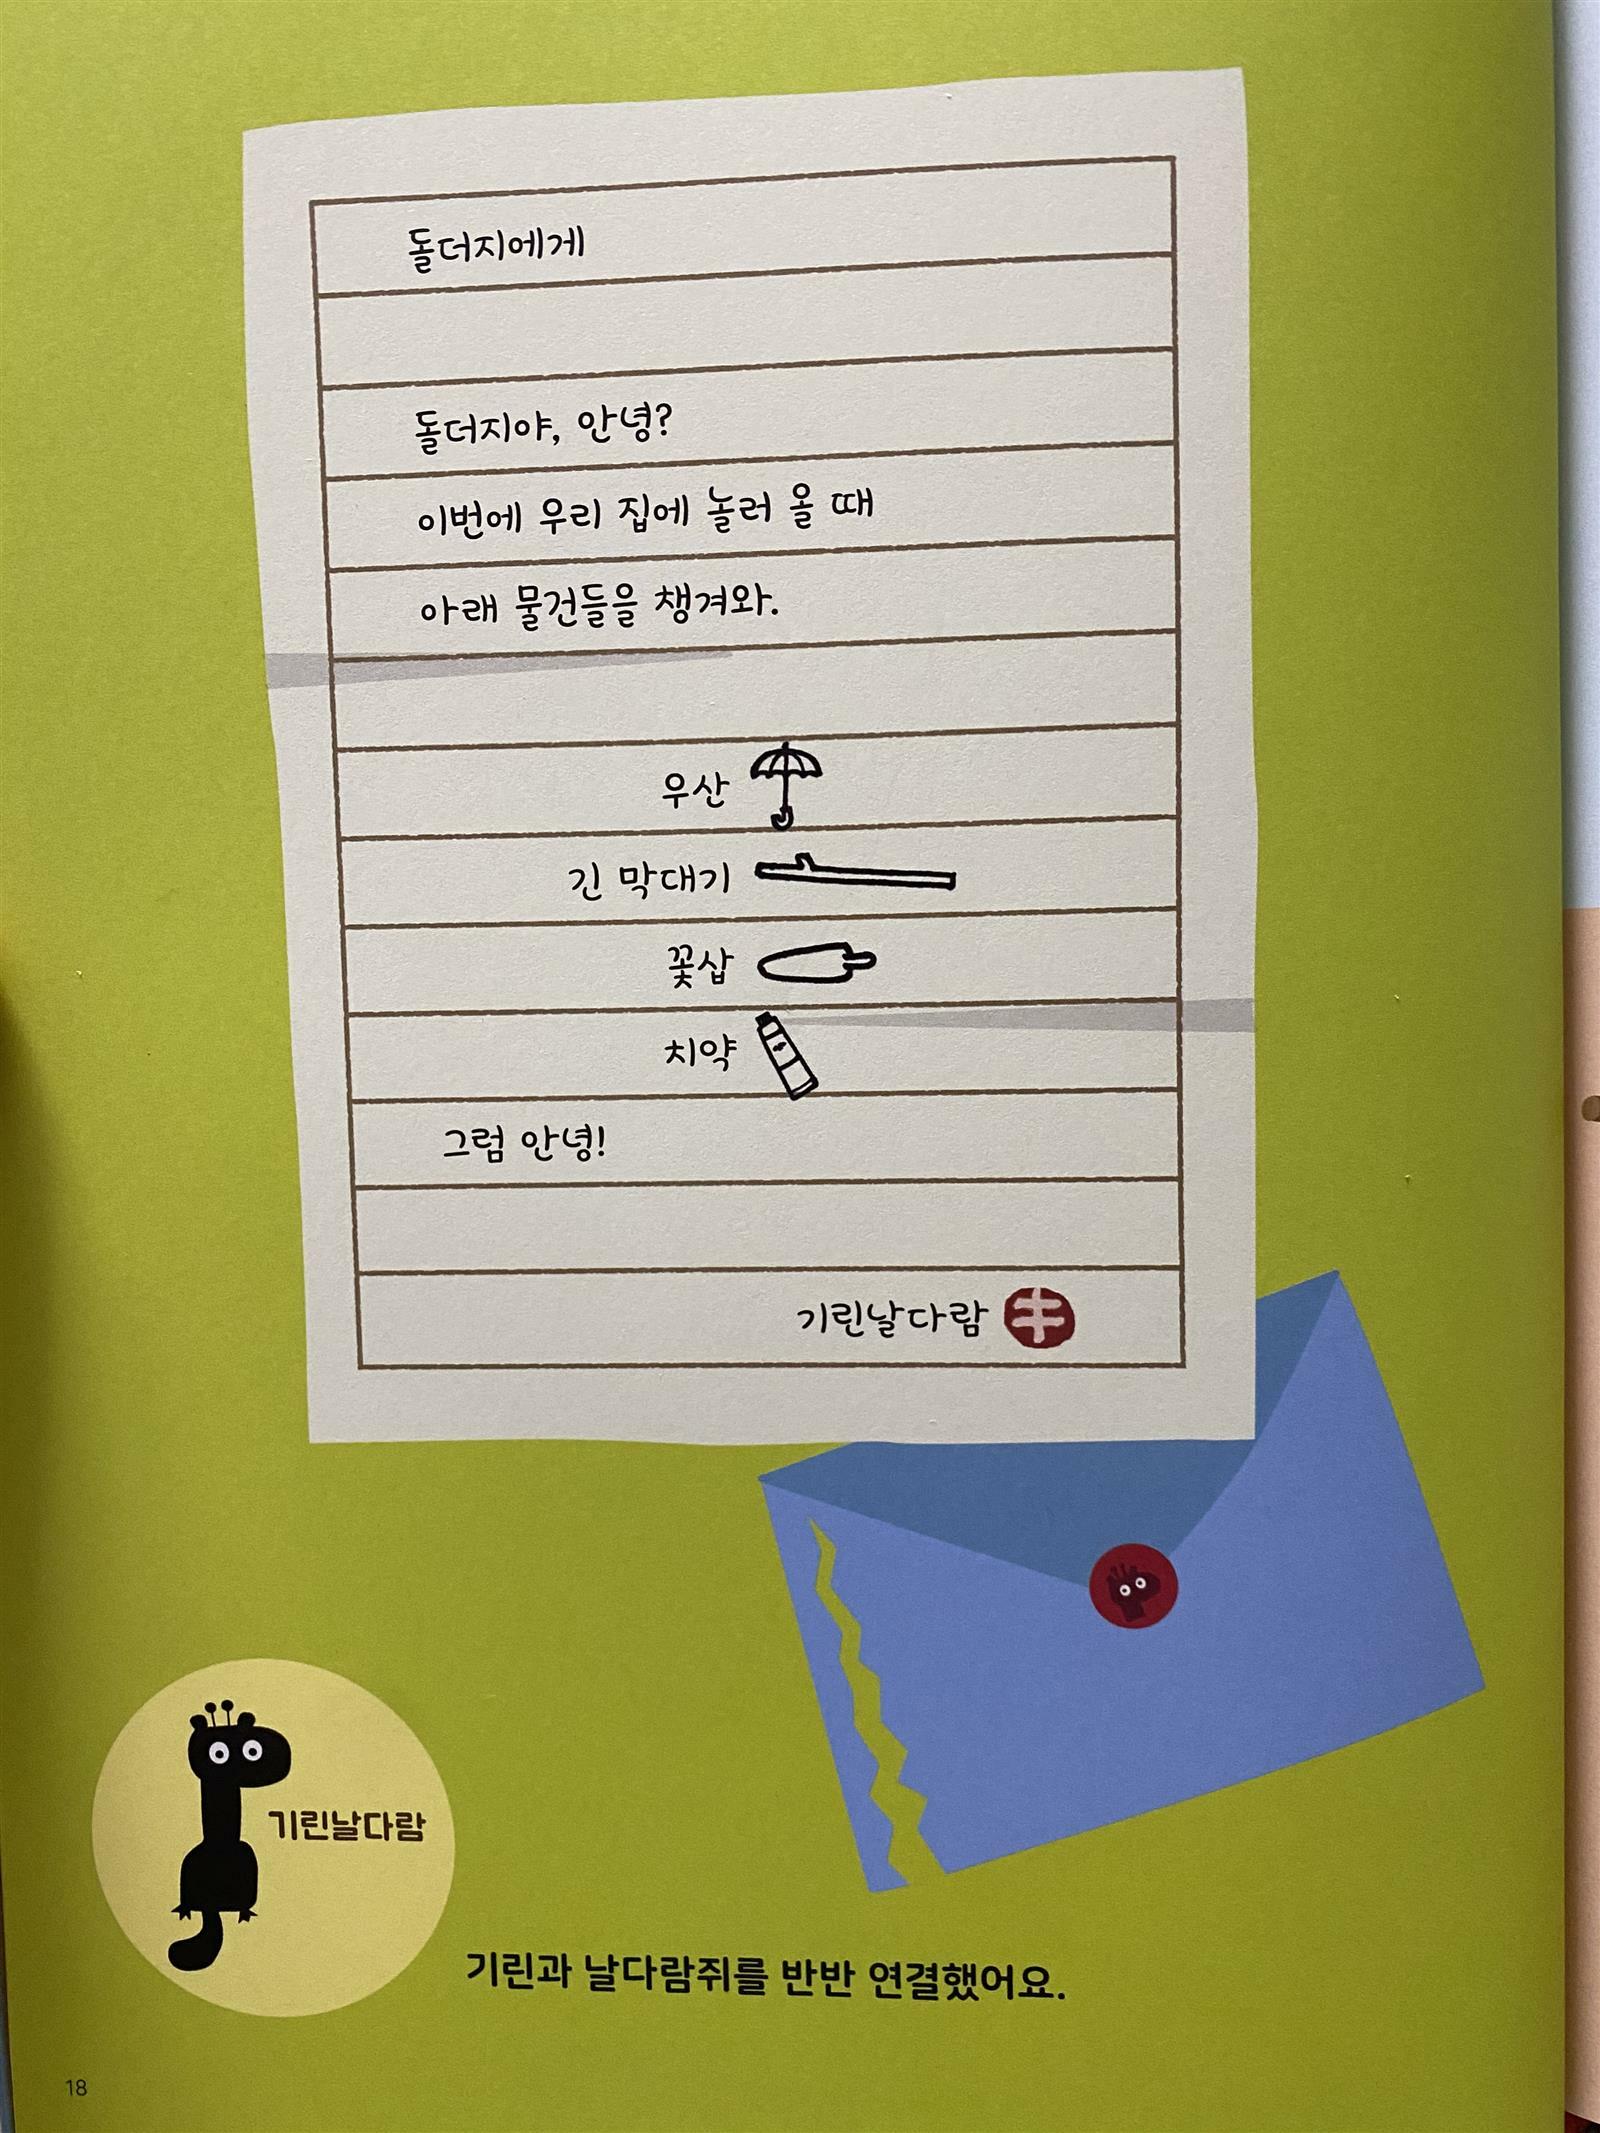 돌더지에게
돌더지야, 안녕?
이번에 우리 집에 놀러 올 때
아래 물건들을 챙겨와.
우산
긴 막대기
꽃삽
치약
그럼 안녕!
기린날다람
기린날다람
기린과 날다람쥐를 반반 연결했어요.
18